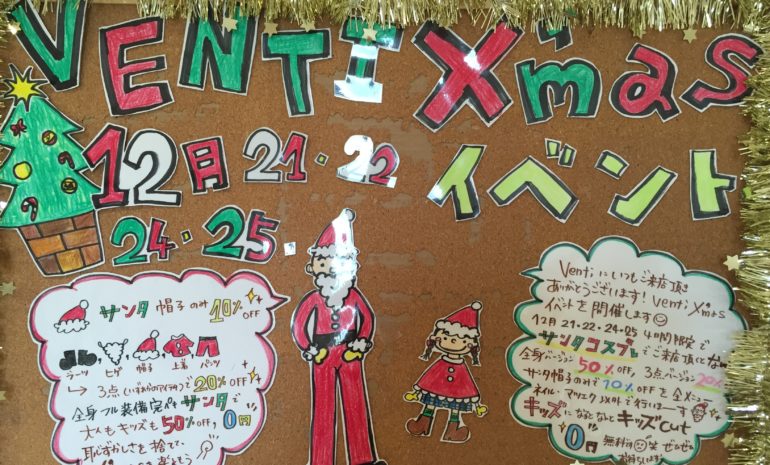 VENTI X'mas
12月 21・22 イベント
24・25・
サンタ 帽子のみ 10% OFF
ブーツ ヒゲ 帽子 上着 パンツ
→ 3点(いずれかのアイテム)で20%OFF
全身フル装備完ペキ サンタで
大人もキッズも50%OFF, 0円
恥ずかしさを捨てて、
Ventiにいつもご来店頂き
ありがとうございます! Venti X'mas
イベントを開催します
12月21・22・24・25 4日間限定で
サンタコスプレでご来店頂くと
全身バージョン 50%OFF 3点バージョン 20%
サンタ帽子のみで10%OFFを全メニュー
ネイル・マツエク以外で行いまーす
キッズになるとなんとキッズcut
0円 無料です 笑 ぜひぜひ
お待ちしています